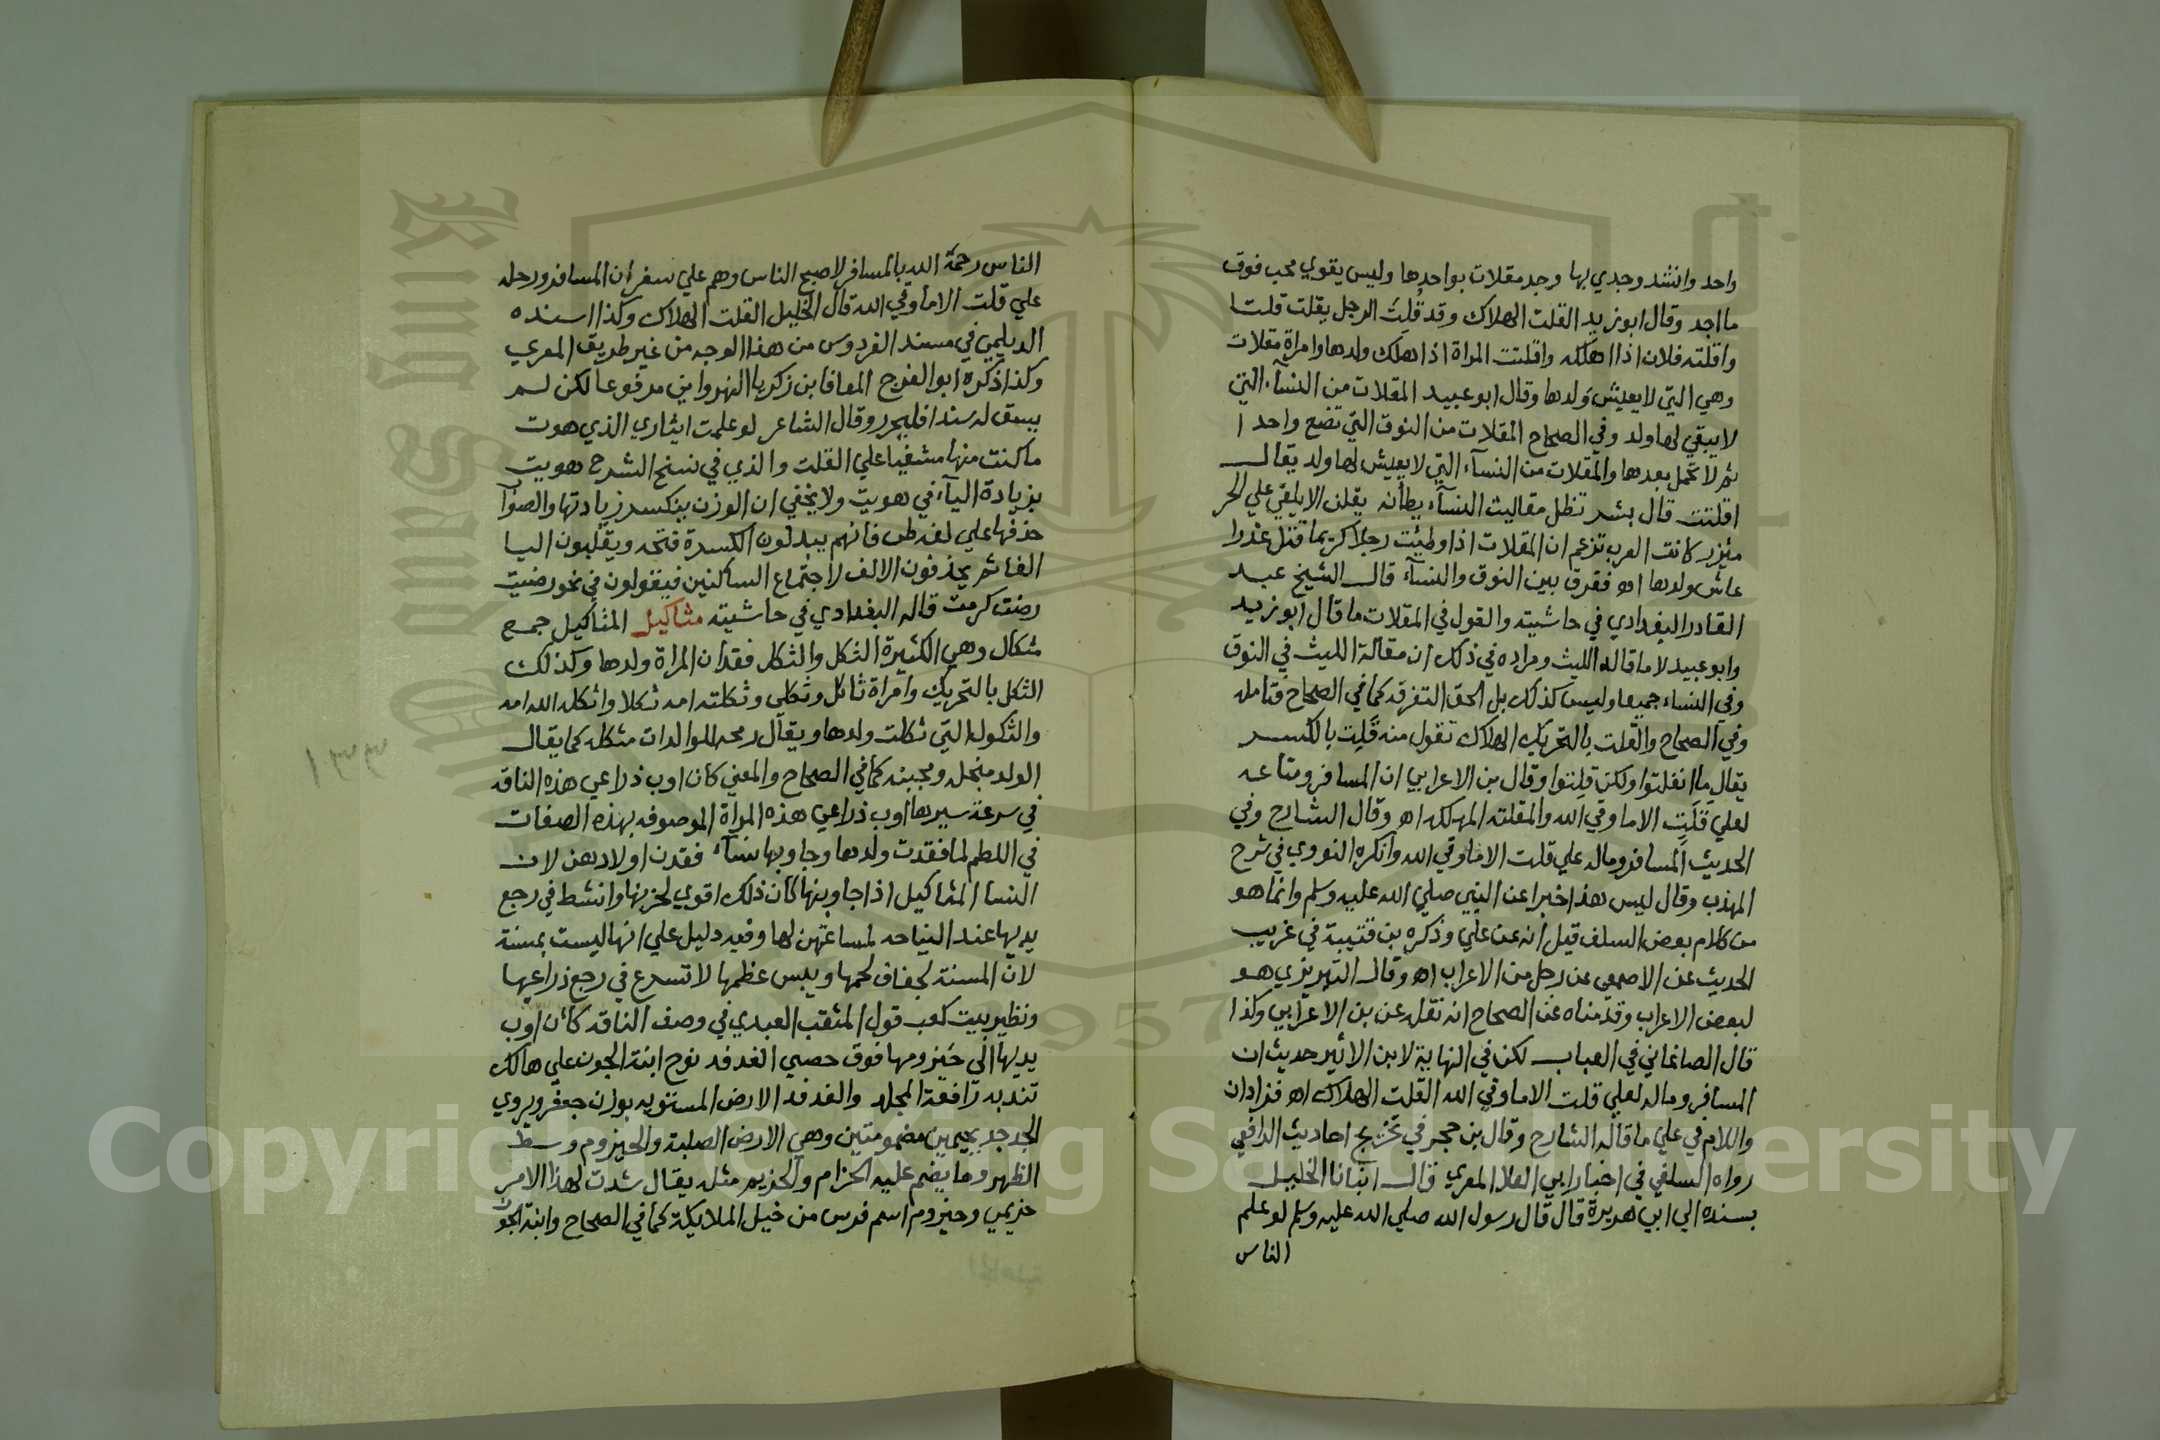 واحد وانشد وجدي بها وجد مقلات بواحدها وليس يقوي محب فوق
ما اجد وقال ابو زيد القلت الهلاك وقد قُلِتَ الرجل يقلت قلت
واقلته فلان اذا اهلكه واقلتت المراة اذا هلك ولدها وامراة مقلات
وهي التي لا يعيش ولدها وقال ابو عبيد المقلات من النسآء التي
لا يبقي لها ولد وفي الصحاح المقلات من النوق التي تضع واحدا
ثم لا تحمل بعدها والمقلات من النسآء التي لا يعيش لها ولد يقال
اقلتت قال بشر تظل مقاليت النسآء يطأنه يقلن الا يلقي علي الحر
ميزر كانت العرب تزعم ان المقلات اذا وطئت رجلا كريما قتل غدرا
عاش ولدها اه ففرق بين النوق والنسآء قال الشيخ عبد
القادر البغدادي في حاشيته والقول في المقلات ما قال ابو زيد
وابو عبيد لا ما قاله الليث ومراده في ذلك ان مقالة الليث في النوق
وفي النساء جميعا وليس كذلك بل الحق التفرقه كما في الصحاح فتامله
وفي الصحاح والقلت بالتحريك الهلاك تقول منه قَلِت بالكسر
يقال ما انفلتوا ولكن قلتوا وقال بن الاعرابي ان المسافر ومتاعه
لعلي قَلَتِ الا ما وقي الله والمقلته المهلكه اه وقال الشارح وفي
الحديث المسافر وماله علي قلت الا ما وقي الله وانكره النووي في شرح
المهذب وقال ليس هذا خبرا عن النبي صلي الله عليه وسلم وانما هو
من كلام بعض السلف قيل انه عن علي وذكره بن قتيبة في غريب
الحديث عن الاصمعي عن رجل من الاعراب اه وقال التبريزي هو
لبعض الاعراب وقدمناه عن الصحاح انه نقله عن بن الاعرابي وكذا
قال الصاغاني في العباب لكن في النهاية لابن الاثير حديث ان
المسافر وماله لعلي قلت الا ما وقي الله القلت الهلاك اه فزاد ان
واللام في علي ما قاله الشارح وقال بن حجر في تخريج احاديث الرافعي
رواه السلفي في اخبار ابي العلا المعري قال انبانا الخليل
بسنده الي ابي هريرة قال قال رسول الله صلي الله عليه وسلم لو علم
الناس
الناس رحمة الله بالمسافر لاصبح الناس وهم علي سفر ان المسافر ورحله
علي قلت الا ما وقي الله قال الخليل القلت الهلاك وكذا اسنده
الديلمي في مسند الفردوس من هذا الوجه من غير طريق المعري
وكذا ذكره ابو الفرج المعافا بن زكريا النهرواني مرفوعا لكن لم
يسق له سندا فليحرر وقال الشاعر لو علمت ايثاري الذي هوت
ما كنت منها مشفيا علي القلت والذي في نسخ الشرح هويت
بزيادة اليآء في هويت ولا يخفي ان الوزن ينكسر زيادتها والصواب
حذفها علي لغه طي فانهم يبدلون الكسرة فتحه ويقلبون اليا
الفا ثم يحذفون الالف لاجتماع الساكنين فيقولون في نحو رضيت
رضت كرمت قاله البغدادي في حاشيته مثاكيل المثاكيل جمع
مثكال وهي الكثيرة الثكل والثكل فقدان المراة ولدها وكذلك
الثكل بالتحريك وامراة ثاكل وثكلي وثكلته امه ثكلا واثكله الله امه
والثكول التي ثكلت ولدها ويقال رمحه للوالدات مثكله كما يقال
الولد منجله ومجبنه كما في الصحاح والمعني كان اوب ذراعي هذه الناقه
في سرعة سيرها اوب ذراعي هذه المراة الموصوفه بهذه الصفات
في اللطم لما فقدت ولدها وجاوبها نسآء فقدن اولادهن لان
النسا المثاكيل اذا جاوبنها كان ذلك اقوي لحزنها وانشط في رجع
يديها عند النياحه لمساعتهن لها وفيه دليل علي انها ليست بمسنة
لان المسنة لجفاف لحمها ويبس عظمها لا تسرع في رجع ذراعيها
ونظير بيت كعب قول المثقب العبدي في وصف الناقه كان اوب
يديها الي حيزومها فوق حصي الفدفد نوح ابنة الجون علي هالك
تندبه رافعة المجلد والفدفد الارض المستويه بوزن جعفر ويروي
الجدجد بجيمين مضمومتين وهي الارض الصلبة والحيزوم وسط
الظهر وما يضم عليه الحزام والحزيم مثله يقال شدت لهذا الامر
حزيمي وحيزوم اسم فرس من خيل الملايكة كما في الصحاح وابنة الجون
Copyright © King Saud University
1957